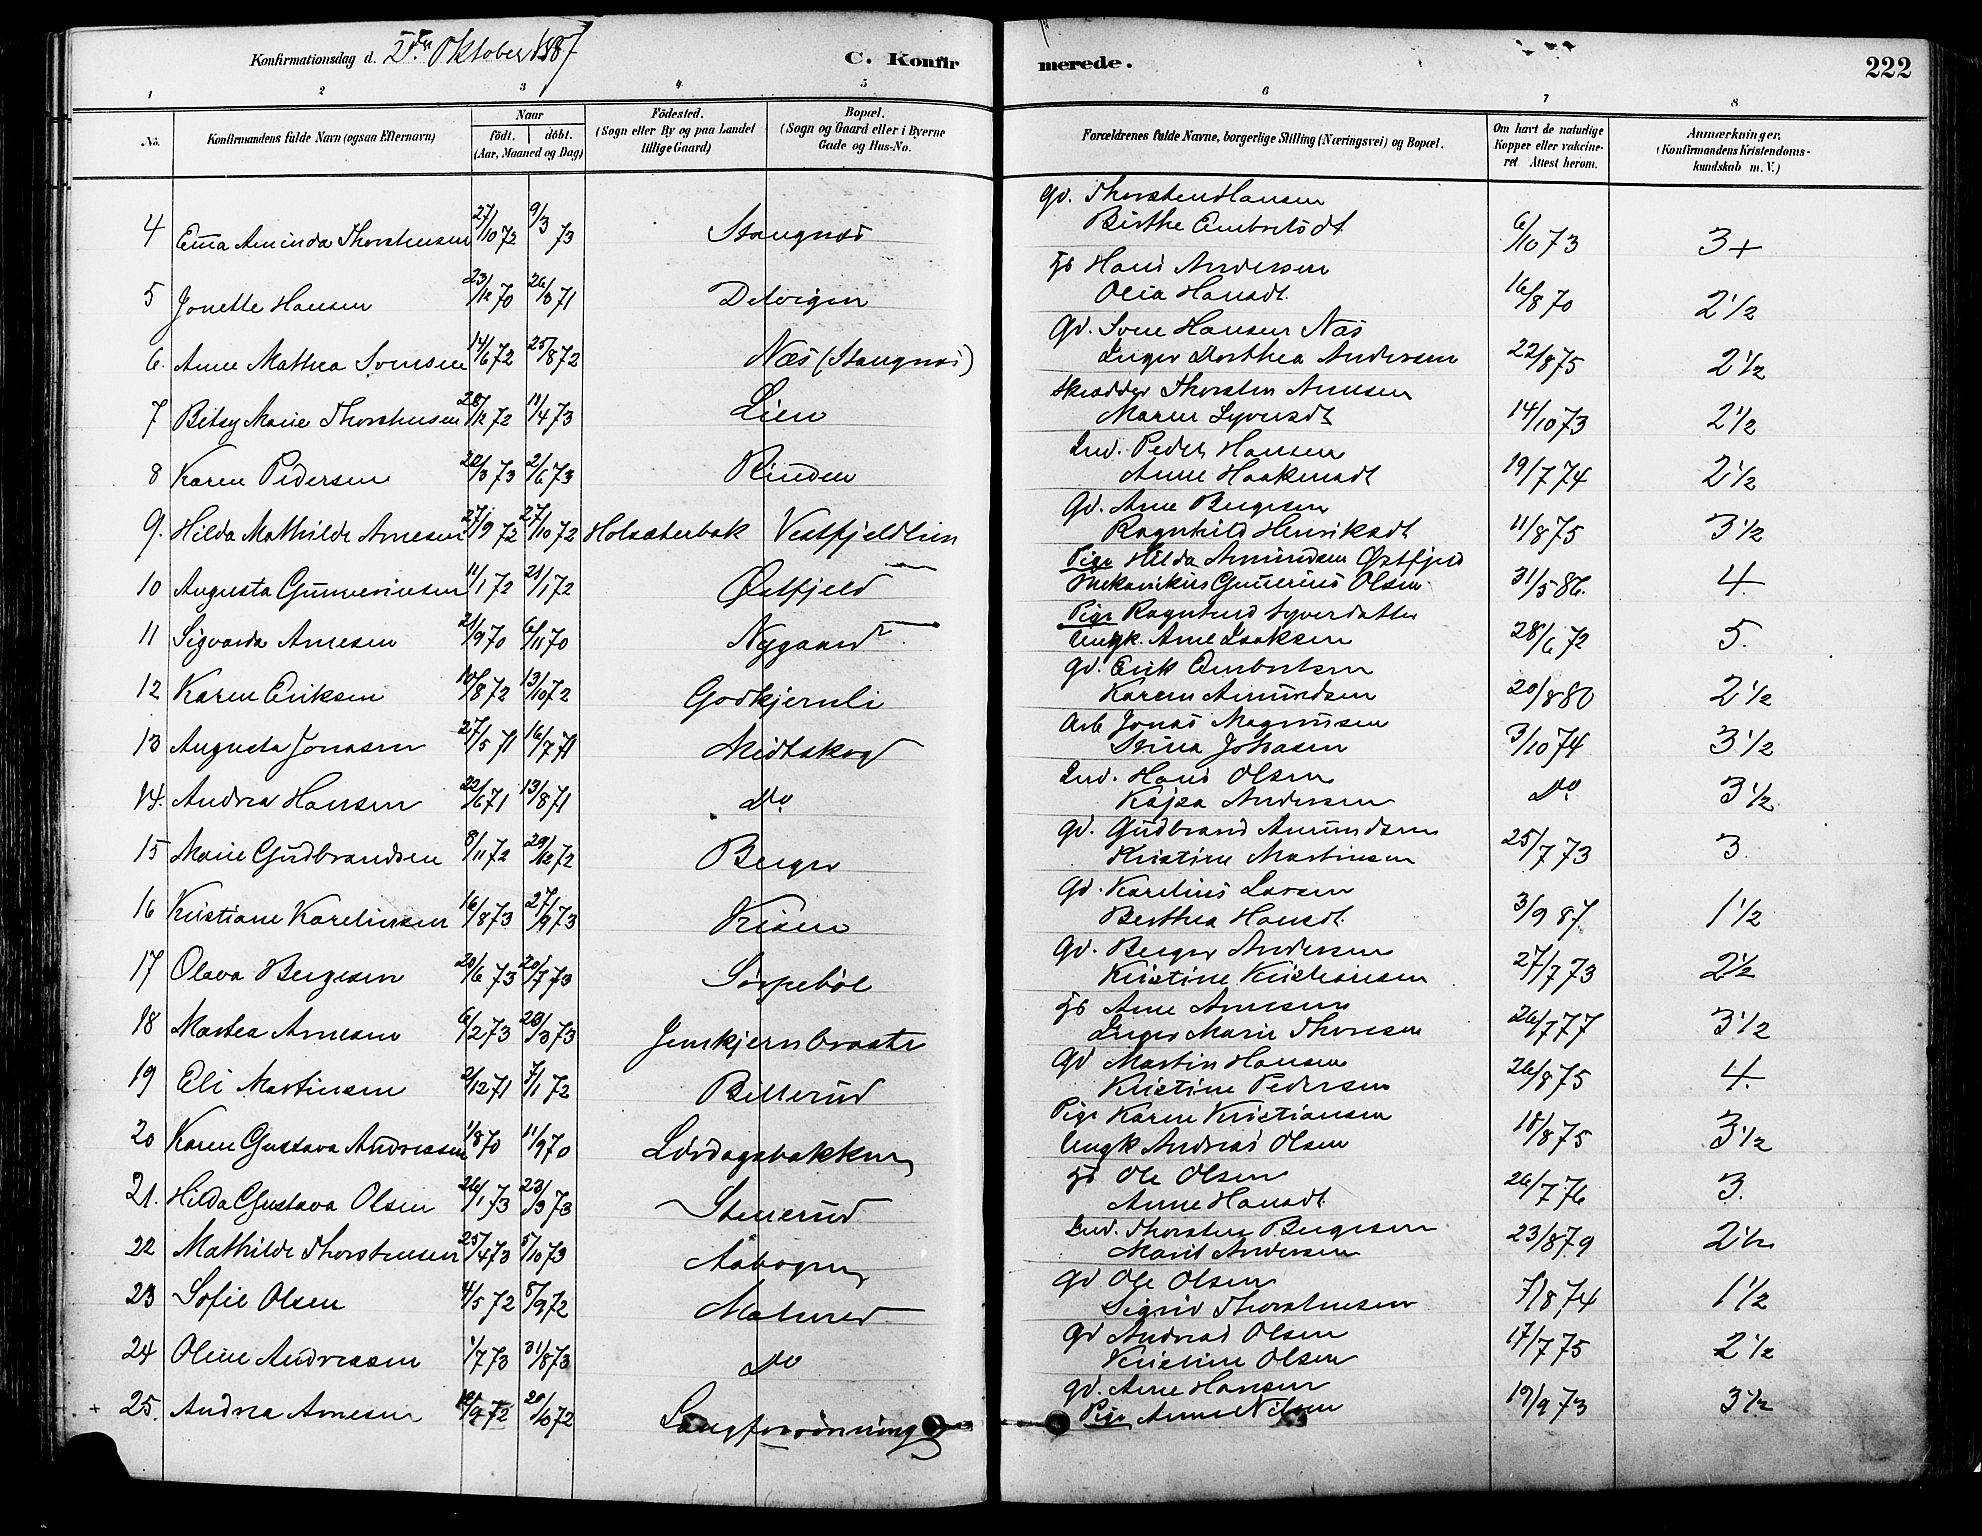 Konfirmationsdag d. 2den Oktober 1887 C. Konfir merede. 222
1 2 3 4 5 6 7 8
No. Konfirmandens fulde Navn (ogsaa Efternavn) Naar födt. döbt. (Aar, Maaned og Dag) Födested. (Sogn eller By og paa Landet tillige Gaard) Bopæl. (Sogn og Gaard eller i Byerne Gade og Hus-No. Forældrenes fulde Navne, borgerlige Stilling (Næringsvei) og Bopæl. Om havt de naturlige Kopper eller vakcineret Attest herom. Anmærkninger. (Konfirmandens Kristendomskundskab m. V.)
Gd. Thorsten Hansen
4 Ema Aminda Thorstensen 27/10 72 9/3 73 Stangnæs Birthe Embretsdt 6/10 73 3+
Hans Andersen
5 Jonette Hansen 23/12 70 26/3 71 Olia Hansdt. 16/8 70 2 1/2
Gd. Sven Hansen Næs
6. Anne Mathea Svensen 14/6 72 25/8 72 Næs (Stangnæs) Inger Dorthea Andersen 22/8 75 2 1/2
Skrædder Thorsten Arnesen
7 Betsy Marie Thorstensen 28/12 72 11/4 73 Lien Maren Syversdt 14/10 73 2 1/2
Ind. Peder Hansen
8 Karen Pedersen 22/3 73 2/6 73 Rinden Anne Haakensdt 19/7 74 2 1/2
Gd. Arne Bergesen
9. Hilda Mathilde Arnesen 27/9 72 27/10 72 Holsæterbak Vestfjeldlien Ragnhild Henriksdt 11/8 75 3 1/2
Pige Hilda Amundsen Østfjeld
10 Augusta Gunneriusen 11/1 72 21/1 72 Østfjeld Mekanikus Gunerius Olsen 31/5 86. 4.
Pige Ragnhild Syverdatter
11 Sigvarda Arnesen 21/9 70 6/11 70 Nygaard Ungk. Arne Isaksen 28/6 72 5.
Gd. Erik Embretsen
12 Karen Eriksen 10/8 72 13/10 72 Godkjernli Karen Amundsen 20/8 80 2 1/2
Arb Jonas Magnusen
13 Augusta Jonasen 27/5 71 16/7 71 Midtskog Stina Johasen 3/10 74 3 1/2
Ind. Hans Olsen
14. Andrea Hansen 22/6 71 13/8 71 do Kajsa Andersen do. 3 1/2
Gd. Gudbrand Amundsen
15 Marie Gudbrandsen 8/11 72 29/12 72 Berger Kristine Martinsen 25/7 73 3.
Gd. Karelius Larsen
16 Kristiane Kareliusen 16/8 73 27/9 73 Risen Berthea Hansdt. 3/9 87. 1 1/2
Gd. Berger Andersen
17 Olava Bergesen 20/6 73 20/7 73 Sørpebøl Kristine Kristiansen 27/7 73 2 1/2
Arne Arnesen
18 Martea Arnesen 6/2 73 23/3 73 Jenskjernbraate Inger Marie Thoresen 26/7 77 3 1/2
Gd Martin Hansen
19 Eli Martinsen 2/12 71 7/1 72 Billerud Kristine Pedersen 26/8 75 4.
Pige Karen Kristiansen
20 Karen Gustava Andreasen 1/8 70 11/9 70 Lördagsbakken Ungk Andreas Olsen 18/8 75 3 1/2
Ole Olsen
21. Hilda Gustava Olsen 26/1 73 23/3 73 Stenerud Anne Hansdt. 26/7 76 3.
Ind. Thorsten Bergesen
22 Mathilde Thorstensen 25/4 73 5/10 73 Aabogen Marit Andersen 23/8 79 2 1/2
Gd Ole Olsen
23 Sofie Olsen 4/5 72 8/9 72 Malmed Sigrid Thorstensen 7/8 74 1 1/2
Gd Andreas Olsen
24 Oline Andreasen 1/7 73 31/8 73 do Kristine Olsen 17/7 75 2 1/2
Gd. Arne Hansen
25. Andrea Arnesen 20/10 72 Pige Anne Nilsen 19/9 73 3 1/2